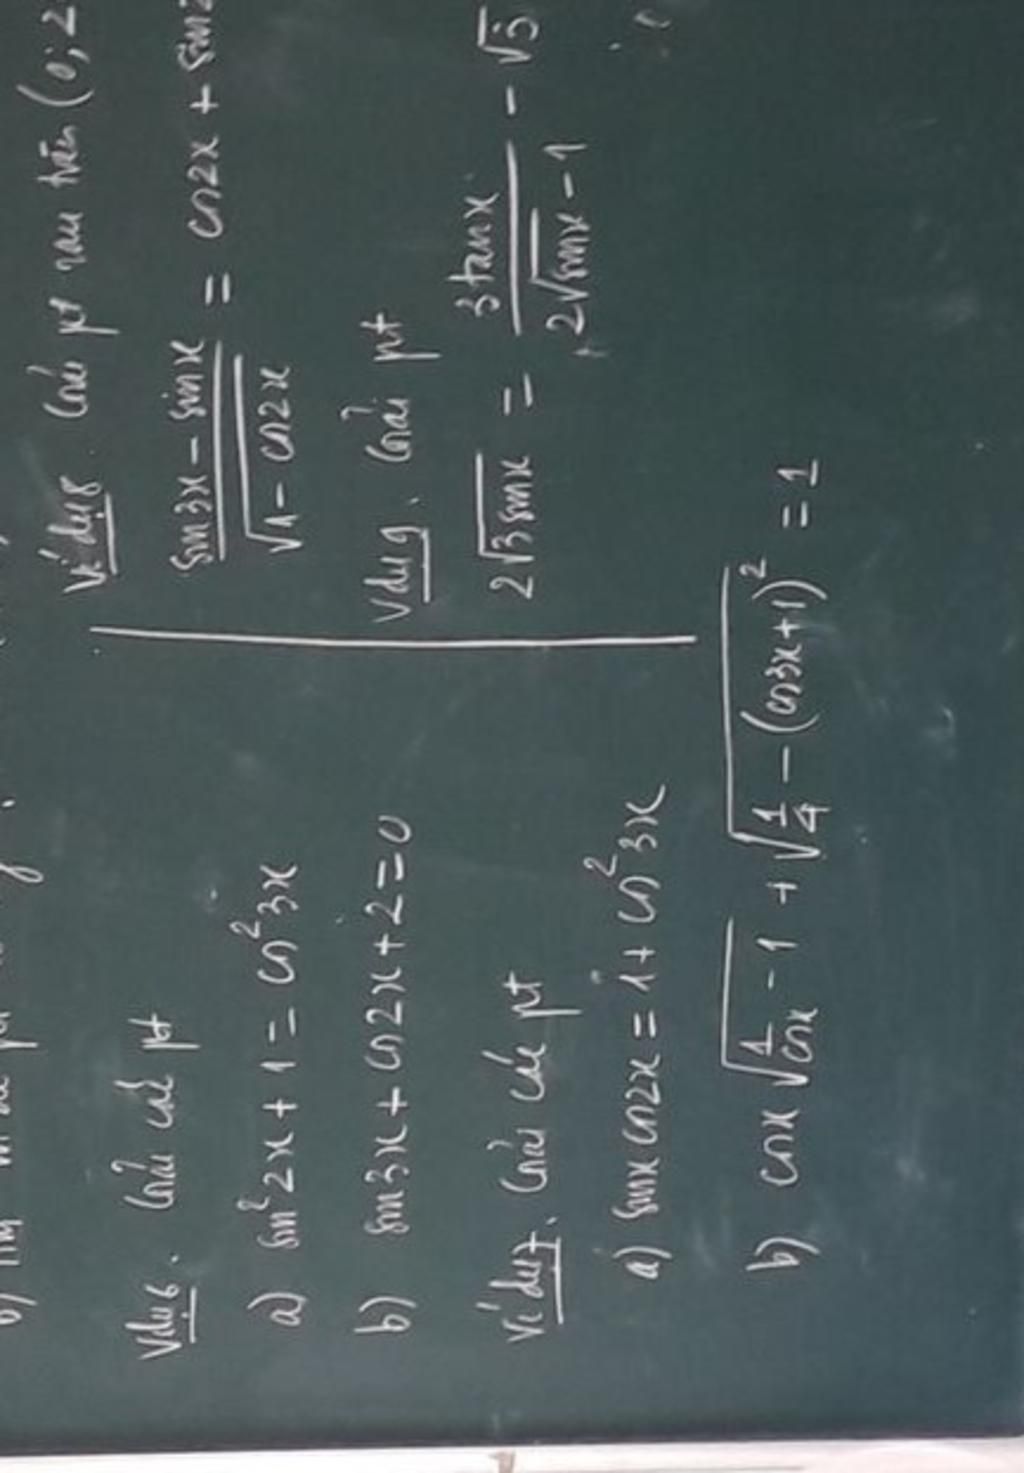 Vdụ 6. Giải các pt
a) sin²2x + 1 = cos²3x
b) sin3x + cos2x + 2 = 0
Ví dụ 7. Giải các pt
a) sinx cos2x = 1 + cos²3x
b) cosx √(1/cosx - 1) + √(1/4 - (cos3x+1)²) = 1
Ví dụ 8. Giải pt sau trên (0; 2
(sin3x - sinx)/√(1 - cos2x) = cos2x + sin2
Vdụ 9. Giải pt
2√(3sinx) = 3tanx/(2√sinx - 1) - √3